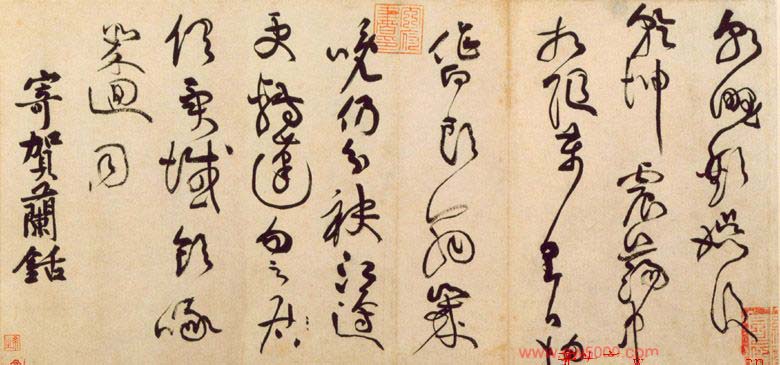 朝野歡娛後
乾坤震蕩中
相隨萬里日揔
作白頭翁歲
晚仍分袂江邊
更轉蓬勿言居
俱異域飲啄
幾迴同
寄賀蘭銛